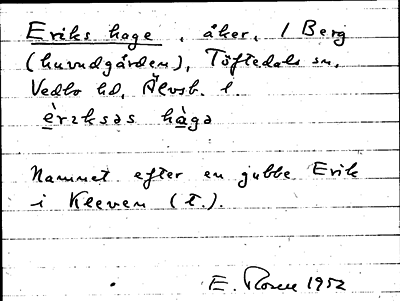 Eriks hage, åker, 1 Berg
(huvudgården), Töftedals sn,
Vedbo hd, Älvsb. l.
èrɪksəs hàgə
Namnet efter en gubbe Erik
i Kleven (t.).
E. Rosell 1952